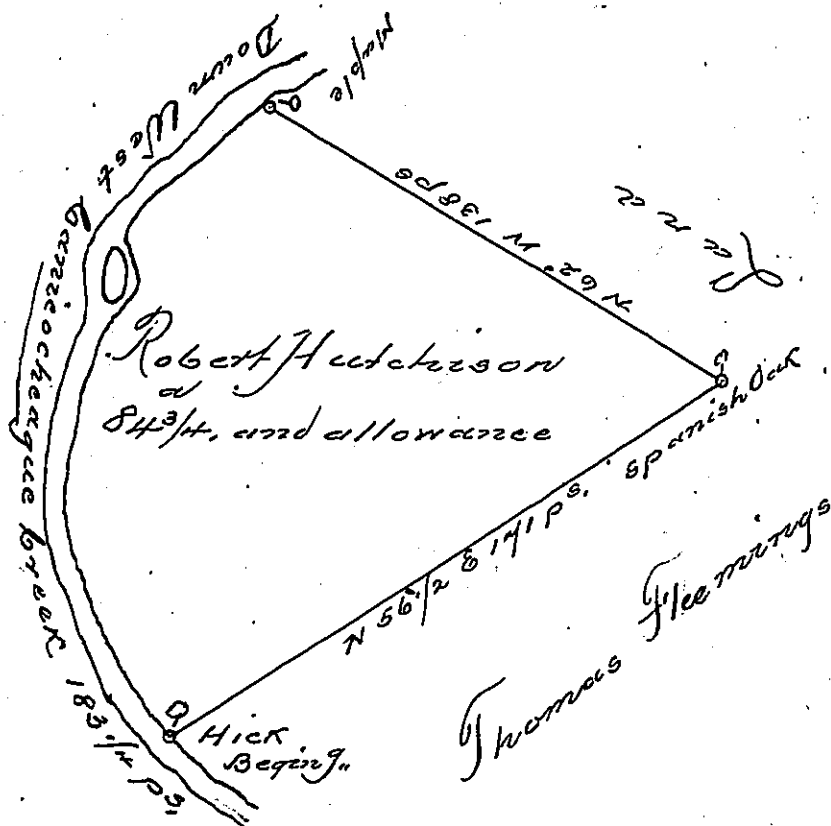 Down West Cannocheague Creek 183 1/4 ps,
Maple
N 62° W 138 ps
Land
Robert Hutchison
a
84 3/4, and allowance
Spanish Oak
N 56 1/2 E 171 ps.
Thomas Fleemings
Hick
Begining,,